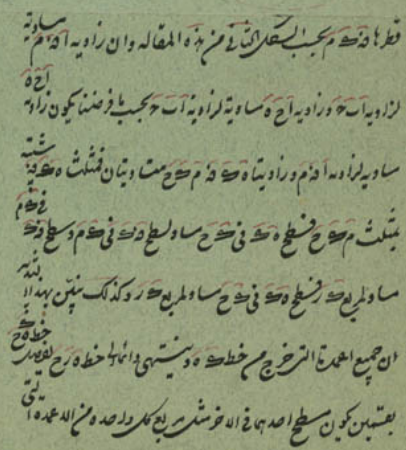 قطرها فه د م بحسب الشكل الثانى من هذه المقاله وان زاويه ا ف م مساوية
لزاويه ا ب ح وزاويه ا ح ه مساوية لزاويه ا ب ح بحسب ما فرضنا يكون زاويه ا ح ه
مساويه لزاويه ا ف م وزاويتا ه د ف م د ح متساويتان فمثلث ه د ف شبيه
بمثلث م د ح فسطح ه د فى د ح مساو لسطح ف د فى د م وسطح ف د فى د م
مساو لمربع د ر فسطح ه د فى د ح مساو لمربع د ر وكذلك يتبين بهذا التدبير
ان جميع اعمدة التى تخرج من خط د ه وينتهى دائما الى خط ه ر ح يفصل خط ه ح
بقسمين يكون مسطح احدهما فى الاخر مثل مربع كل واحده من الاعمده التى